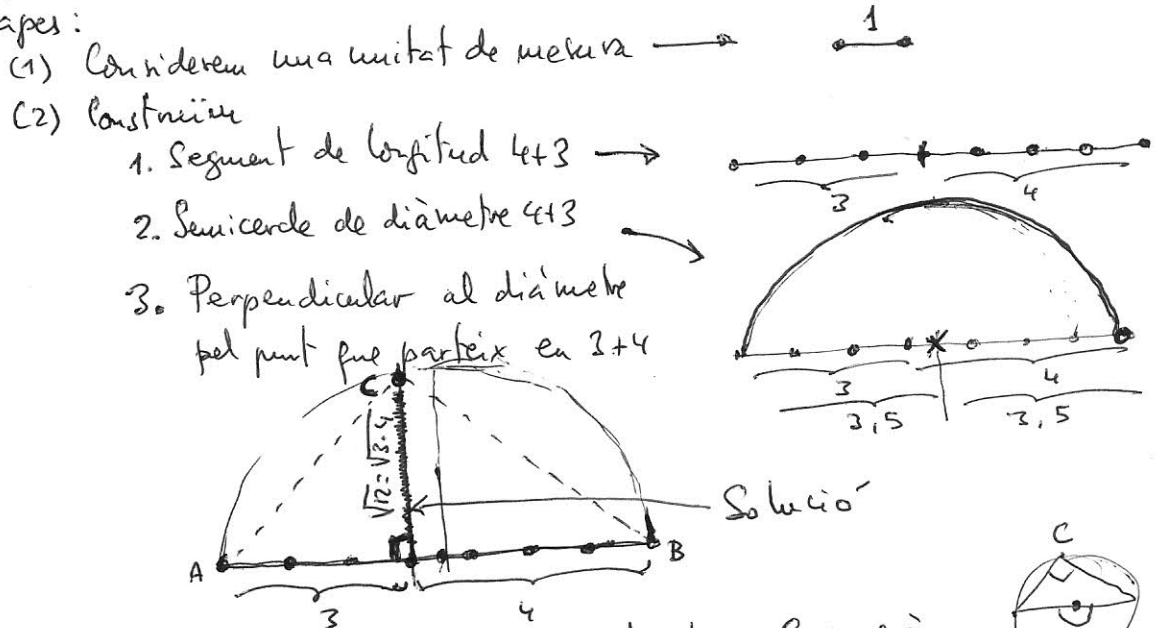 apes:
(1) Considerem una unitat de mesura
1
(2) Construïm
1. Segment de longitud 4+3
3 4
2. Semicercle de diàmetre 4+3
3. Perpendicular al diàmetre
pel punt que parteix en 3+4
3 4
3,5 3,5
C
√12=√3·4
Solució
A B
3 4
C